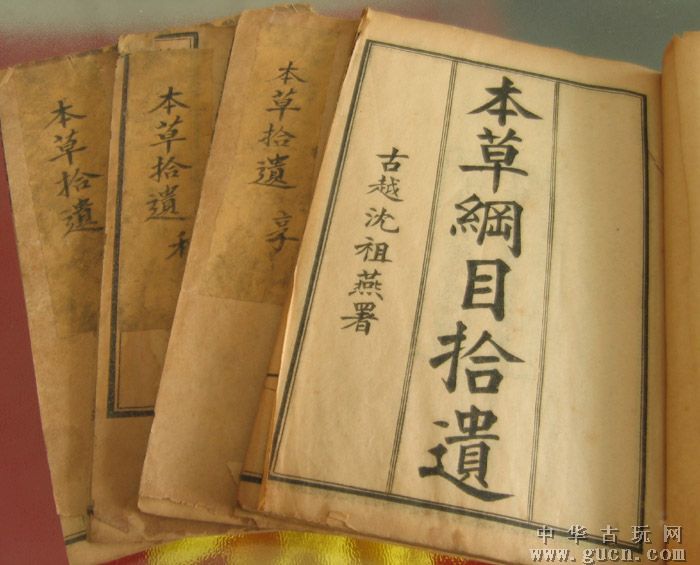 本草綱目拾遺
古越沈祖燕署
本草拾遺
亨
本草拾遺
利
本草拾遺
中华古玩网
www.gucn.com